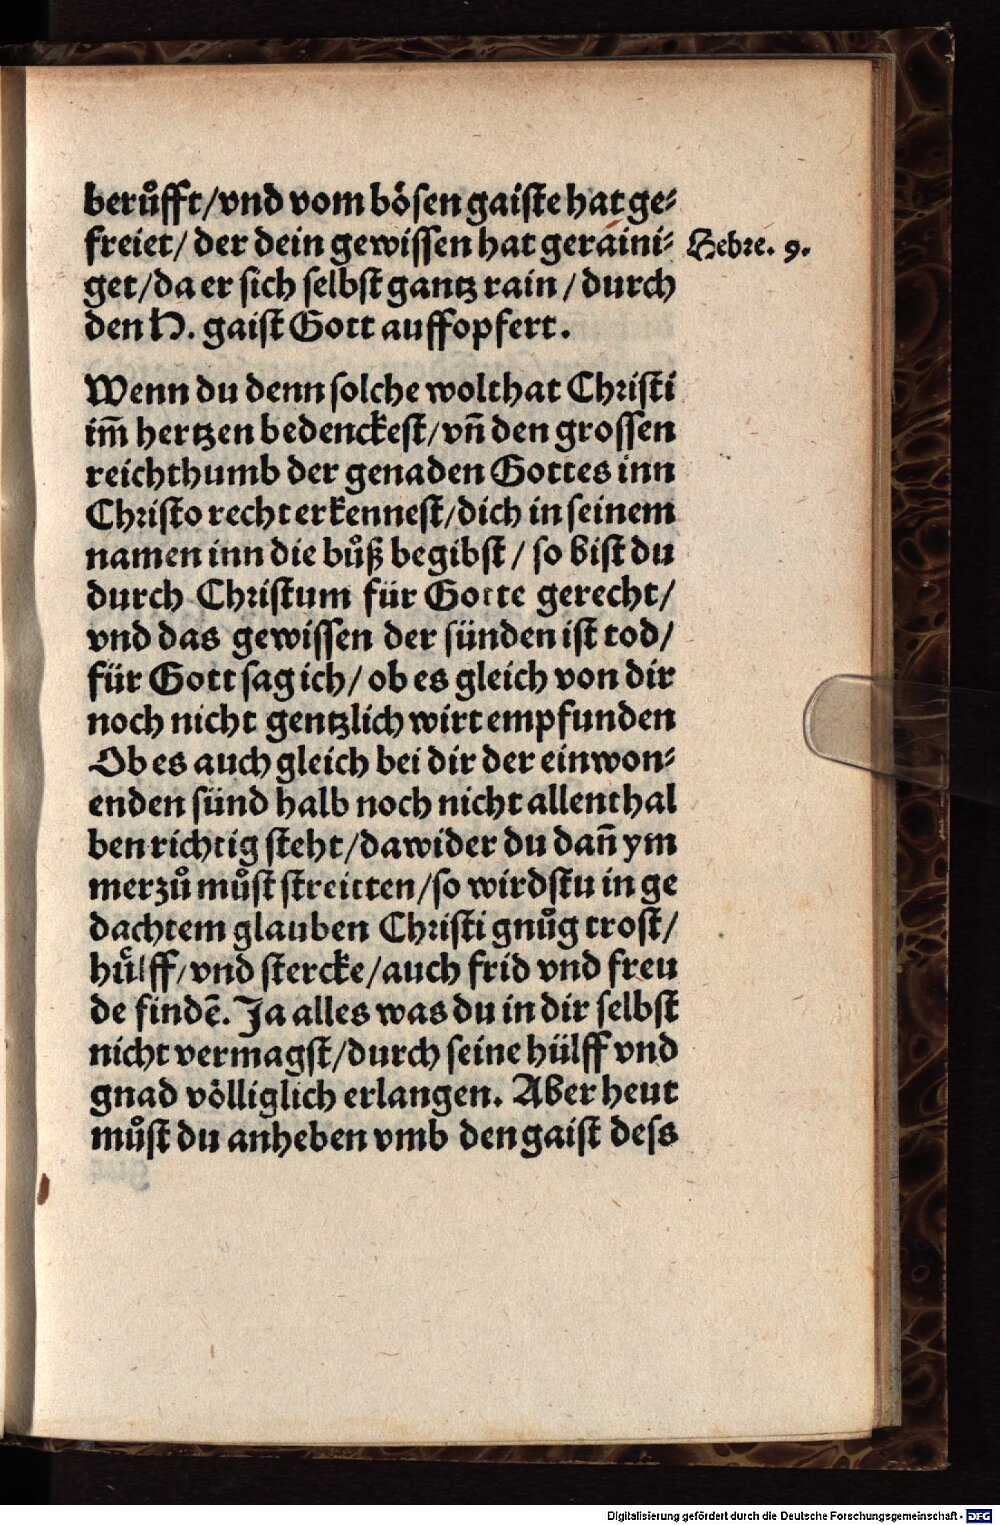 berůfft/vnd vom bösen gaiste hat ge⸗
freiet/ der dein gewissen hat geraini⸗
Hebre. 9.
get/da er sich selbst gantz rain / durch
den H. gaist Gott auffopfert.
Wenn du denn solche wolthat Christi
im̄ hertzen bedenckest/vn̄ den grossen
reichthumb der genaden Gottes inn
Christo recht erkennest/dich in seinem
namen inn die bůß begibst / so bist du
durch Christum für Gotte gerecht/
vnd das gewissen der sünden ist tod/
für Gott sag ich/ ob es gleich von dir
noch nicht gentzlich wirt empfunden
Ob es auch gleich bei dir der einwon⸗
enden sünd halb noch nicht allenthal
ben richtig steht/dawider du dan̄ ym
merzů můst streitten/so wirdstu in ge
dachtem glauben Christi gnůg trost/
hülff/vnd stercke/auch frid vnd freu
de findē. Ja alles was du in dir selbst
nicht vermagst/durch seine hülff vnd
gnad völliglich erlangen. Aber heut
můst du anheben vmb den gaist dess
Digitalisierung gefördert durch die Deutsche Forschungsgemeinschaft - DFG